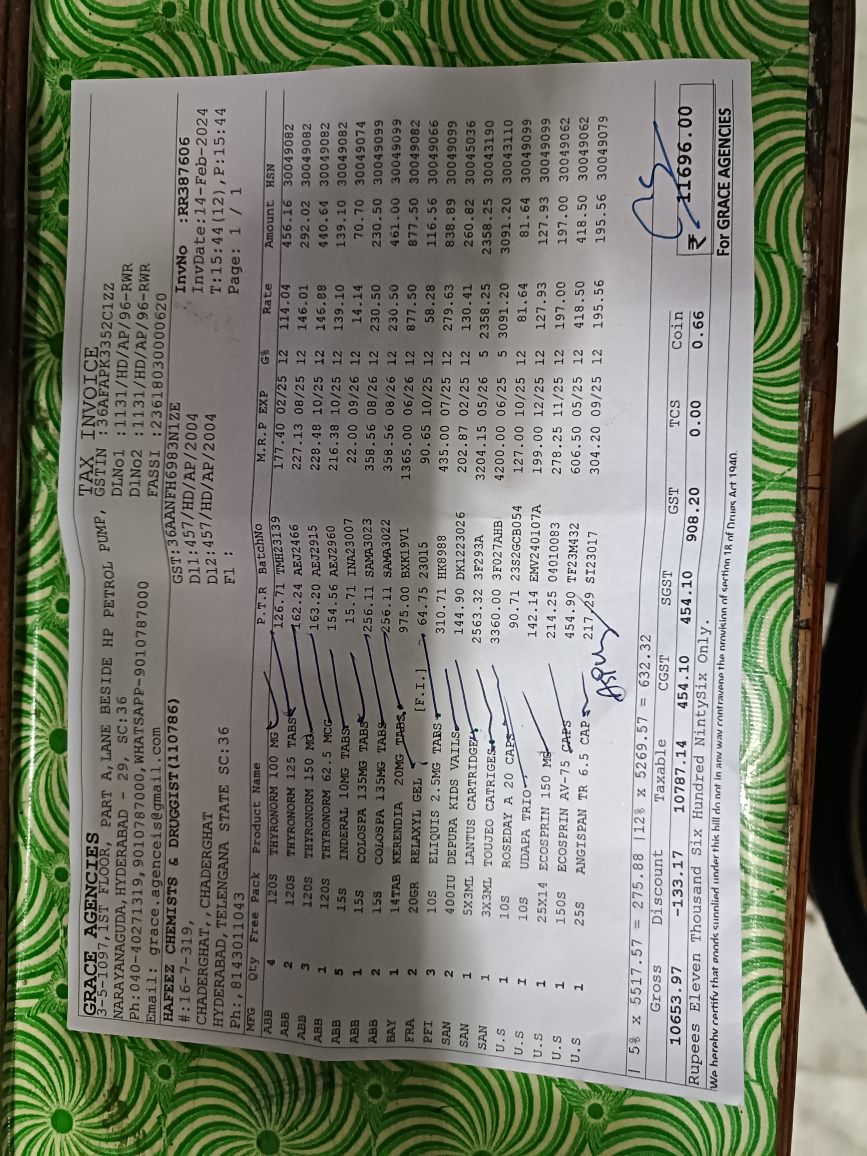 GRACE AGENCIES TAX INVOICE
3-5-1097,1ST FLOOR, PART A,LANE BESIDE HP PETROL PUMP, GSTIN :36AFAPK3352C1ZZ
NARAYANAGUDA,HYDERABAD - 29, SC:36 DLNo1 :1131/HD/AP/96-RWR
Ph:040-40271319,9010787000,WHATSAPP-9010787000 DlNo2 :1131/HD/AP/96-RWR
Email: grace.agenceis@gmail.com FASSI :23618030000620
HAFEEZ CHEMISTS & DRUGGIST(110786) GST:36AANFH6983N1ZE InvNo :RR387606
#:16-7-319, Dl1:457/HD/AP/2004 InvDate:14-Feb-2024
CHADERGHAT,,CHADERGHAT Dl2:457/HD/AP/2004 T:15:44(12),P:15:44
HYDERABAD,TELENGANA STATE SC:36 Fl : Page: 1 / 1
Ph:,8143011043
MFG Qty Free Pack Product Name P.T.R BatchNo M.R.P EXP G% Rate Amount HSN
ABB 4 120S THYRONORM 100 MG 126.71 TMH23139 177.40 02/25 12 114.04 456.16 30049082
ABB 2 120S THYRONORM 125 TABS 162.24 AEJ2466 227.13 08/25 12 146.01 292.02 30049082
ABB 3 120S THYRONORM 150 MG 163.20 AEJ2915 228.48 10/25 12 146.88 440.64 30049082
ABB 1 120S THYRONORM 62.5 MCG 154.56 AEJ2960 216.38 10/25 12 139.10 139.10 30049082
ABB 5 15S INDERAL 10MG TABS 15.71 INA23007 22.00 09/26 12 14.14 70.70 30049074
ABB 1 15S COLOSPA 135MG TABS 256.11 SAMA3023 358.56 08/26 12 230.50 230.50 30049099
ABB 2 15S COLOSPA 135MG TABS 256.11 SAMA3022 358.56 08/26 12 230.50 461.00 30049099
BAY 1 14TAB KERENDIA 20MG TABS 975.00 BXK19V1 1365.00 06/26 12 877.50 877.50 30049082
FRA 2 20GR RELAXYL GEL [F.I.] 64.75 23015 90.65 10/25 12 58.28 116.56 30049066
PFI 3 10S ELIQUIS 2.5MG TABS 310.71 HK8988 435.00 07/25 12 279.63 838.89 30049099
SAN 2 400IU DEPURA KIDS VAILS 144.90 DK1223026 202.87 02/25 12 130.41 260.82 30045036
SAN 1 5X3ML LANTUS CARTRIDGE 2563.32 3F293A 3204.15 05/26 5 2358.25 2358.25 30043190
SAN 1 3X3ML TOUJEO CATRIGES 3360.00 3F027AHB 4200.00 06/25 5 3091.20 3091.20 30043110
U.S 1 10S ROSEDAY A 20 CAPS 90.71 23S2GCB054 127.00 10/25 12 81.64 81.64 30049099
U.S 1 10S UDAPA TRIO 142.14 EMV240107A 199.00 12/25 12 127.93 127.93 30049099
U.S 1 25X14 ECOSPRIN 150 MG 214.25 04010083 278.25 11/25 12 197.00 197.00 30049062
U.S 1 150S ECOSPRIN AV-75 CAPS 454.90 TF23M432 606.50 05/25 12 418.50 418.50 30049062
U.S 1 25S ANGISPAN TR 6.5 CAP 217.29 SI23017 304.20 09/25 12 195.56 195.56 30049079
| 5% x 5517.57 = 275.88 |12% x 5269.57 = 632.32
Gross Discount Taxable CGST SGST GST TCS Coin
10653.97 -133.17 10787.14 454.10 454.10 908.20 0.00 0.66 ₹ 11696.00
Rupees Eleven Thousand Six Hundred NintySix Only.
We hereby certify that goods supplied under this bill do not in any way contravene the provision of section 18 of Drugs Act 1940. For GRACE AGENCIES